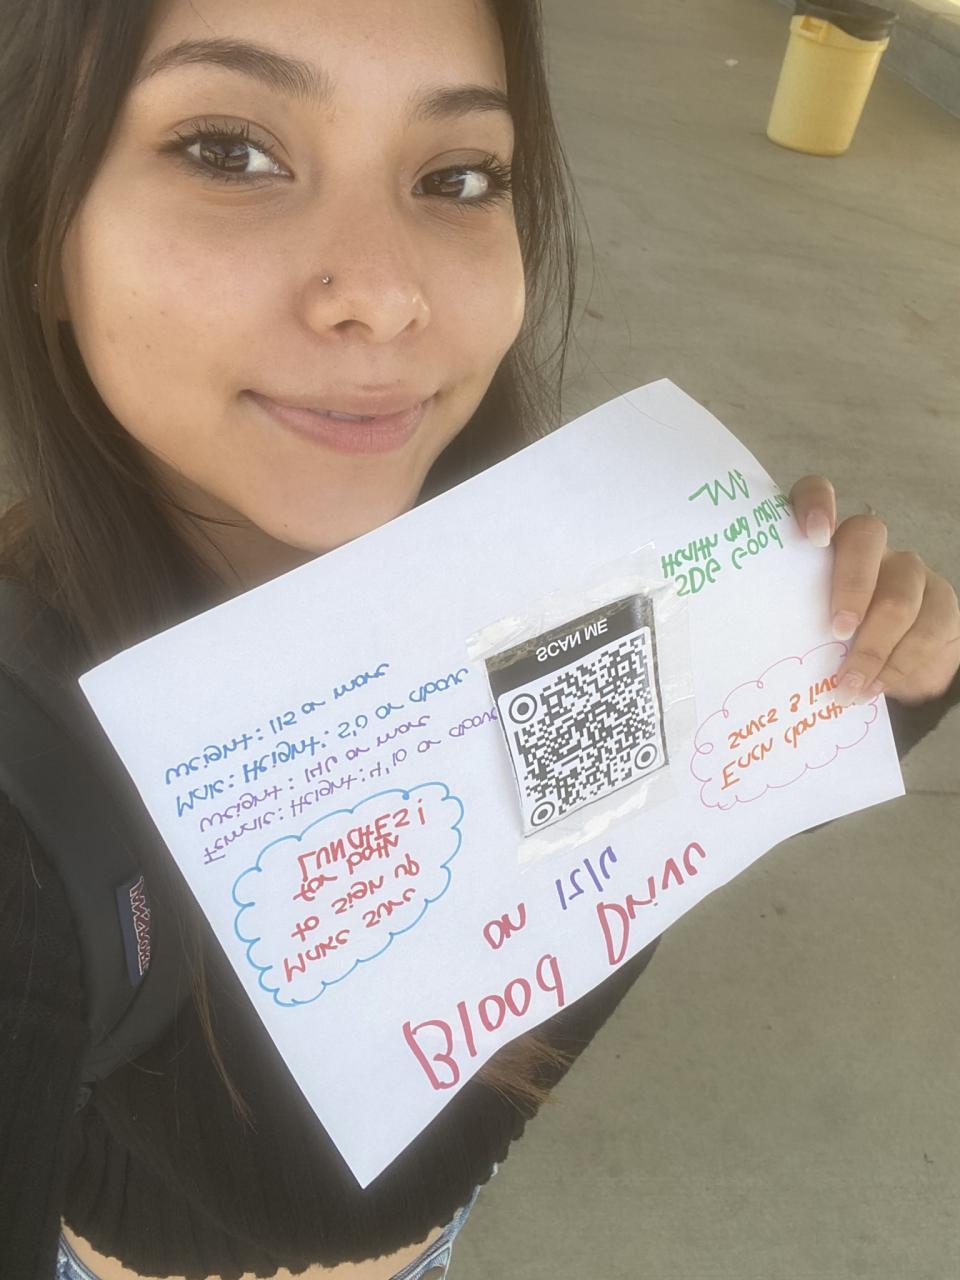 Blood Drive
on
Make sure
to sign up
for both
LUNCHES!
Female: Height: 4'10 or above
weight: or more
Male: Height: 5'0 or above
weight: 115 or more
SCAN ME
Each donation
saves 3 lives
SDG Good
Health and Well
JANSPORT